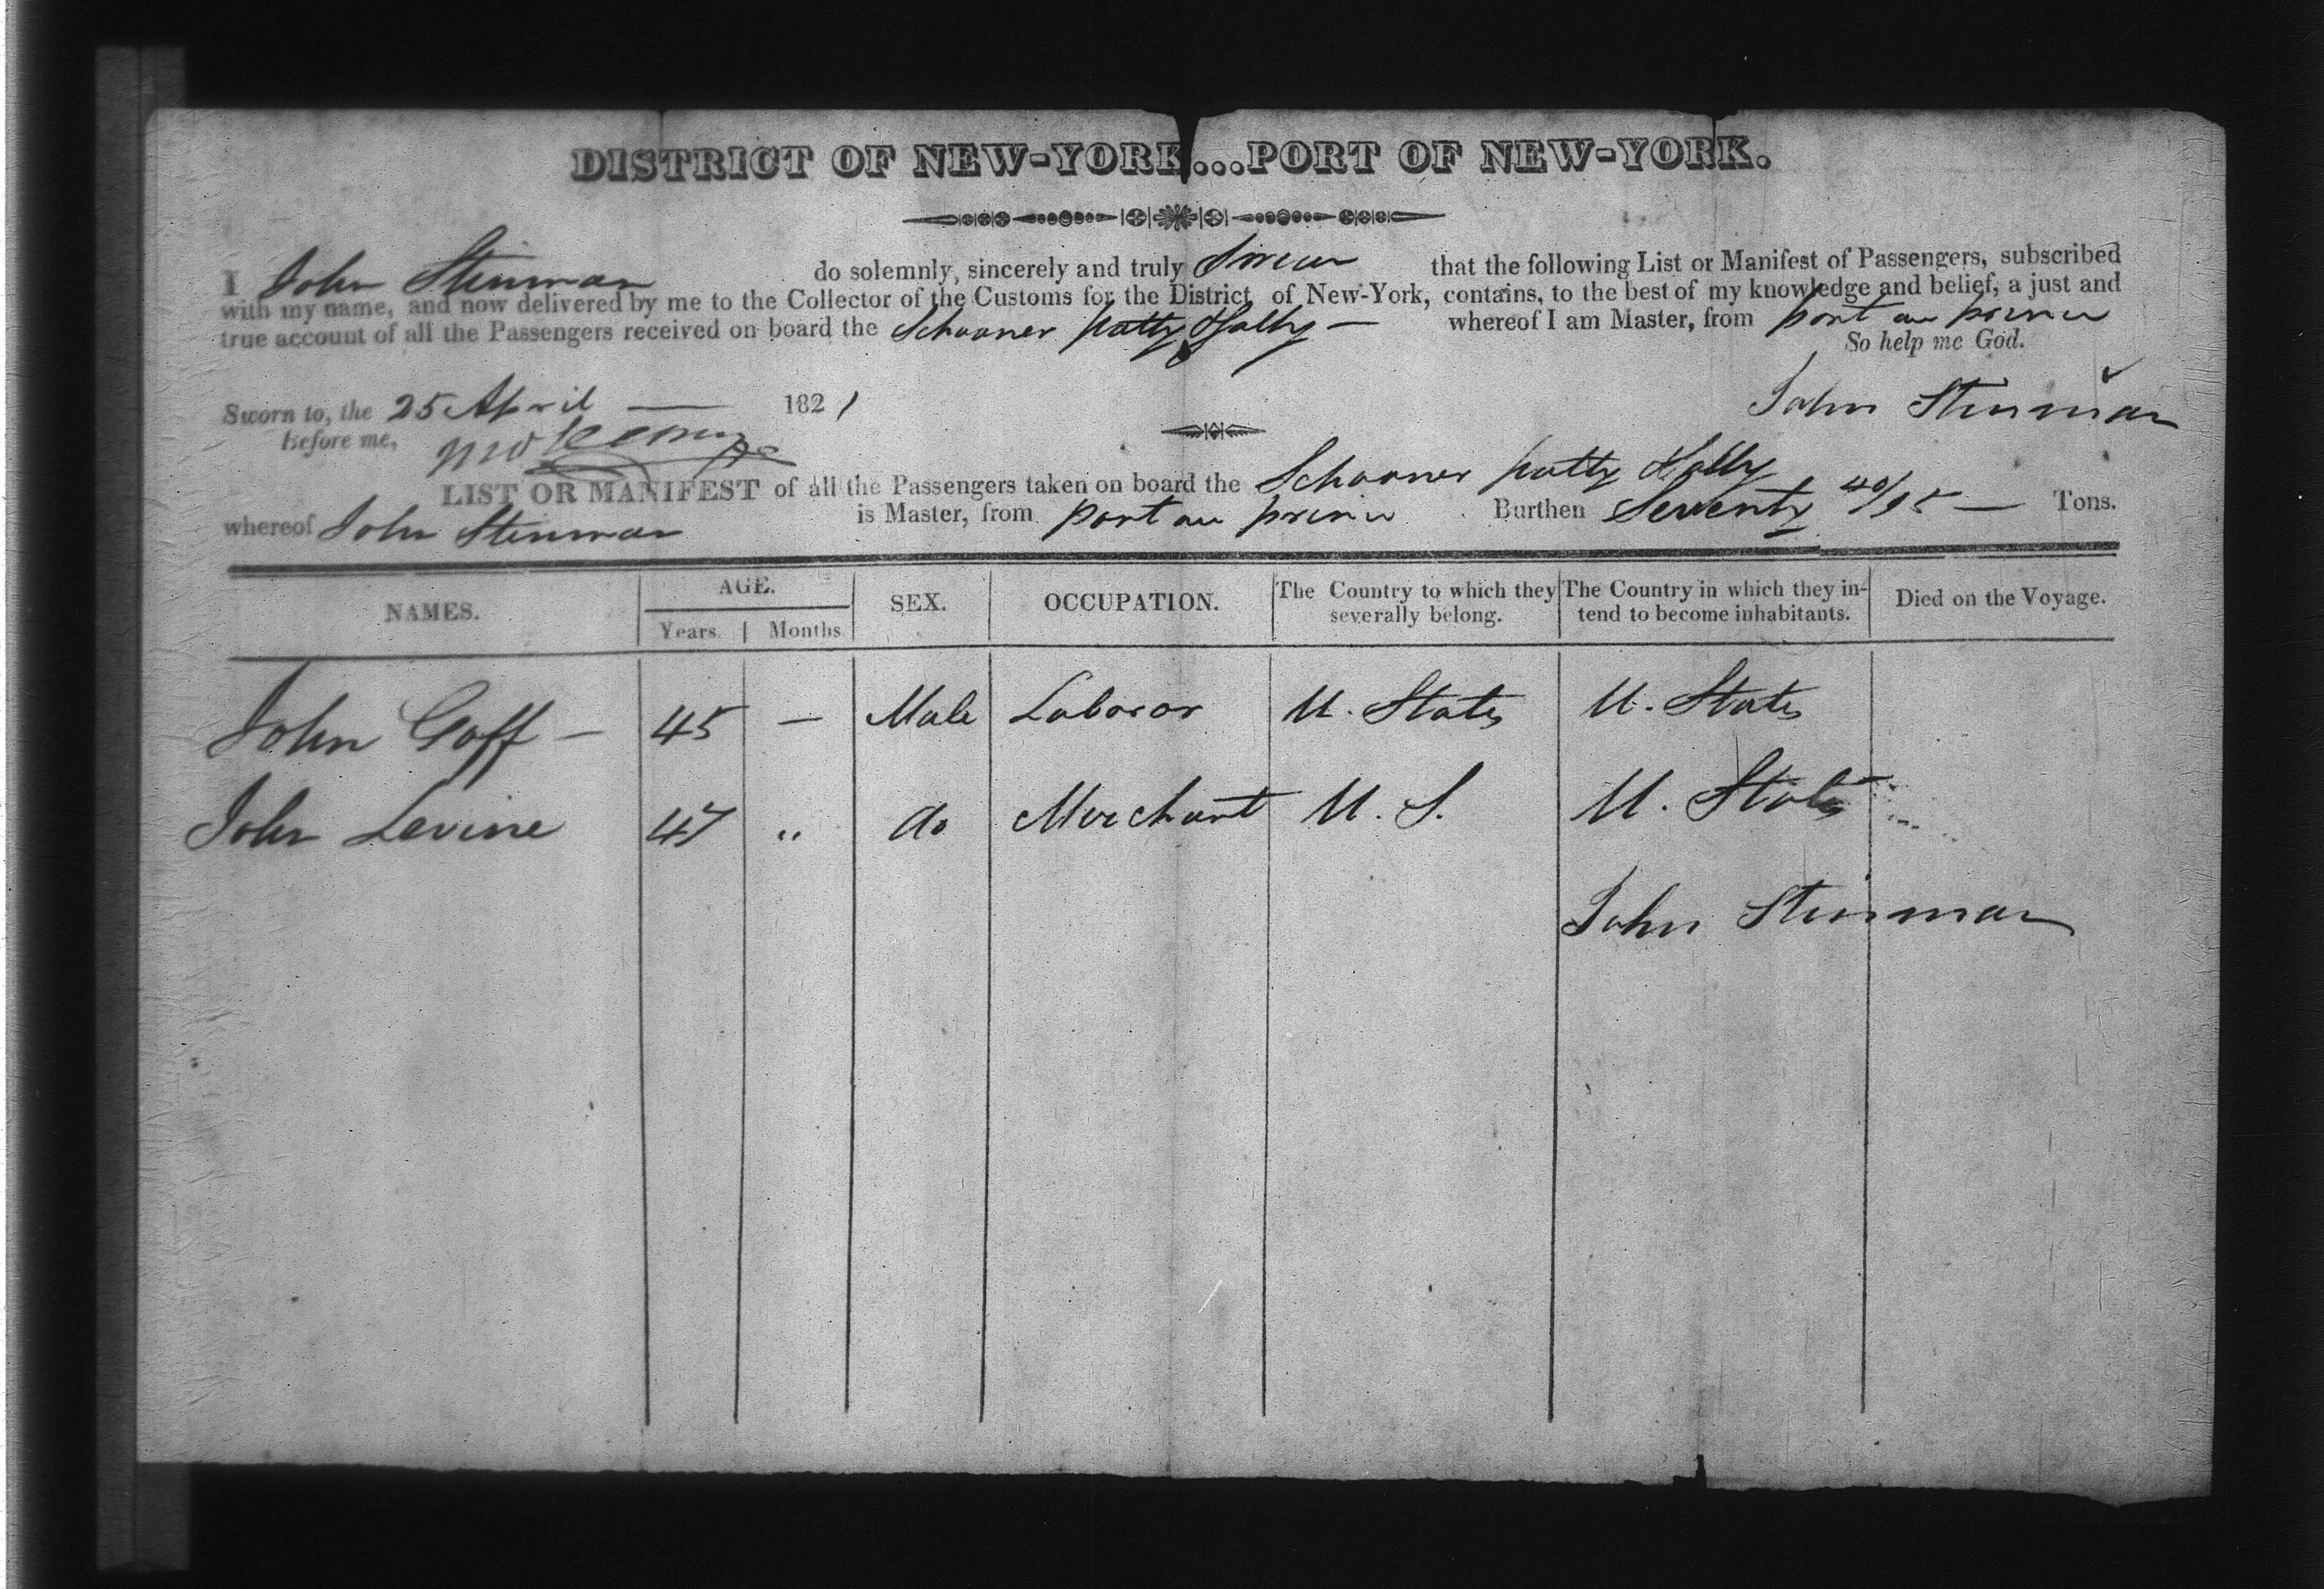 DISTRICT OF NEW-YORK...PORT OF NEW-YORK.
I John Stinman do solemnly, sincerely and truly Swear that the following List or Manifest of Passengers, subscribed
with my name, and now delivered by me to the Collector of the Customs for the District of New-York, contains, to the best of my knowledge and belief, a just and
true account of all the Passengers received on board the Schooner patty & Sally — whereof I am Master, from port au prince
So help me God.
Sworn to, the 25 April — 1821
John Stinman
Before me,
LIST OR MANIFEST of all the Passengers taken on board the Schooner patty & Sally
whereof John Stinman is Master, from port au prince Burthen Seventy 40/95 — Tons.
NAMES. AGE. Years Months SEX. OCCUPATION. The Country to which they severally belong. The Country in which they intend to become inhabitants. Died on the Voyage.
John Goff — 45 — Male Laboror U. States U. States
John Levine 47 " do Merchant U. S. U. States
John Stinman